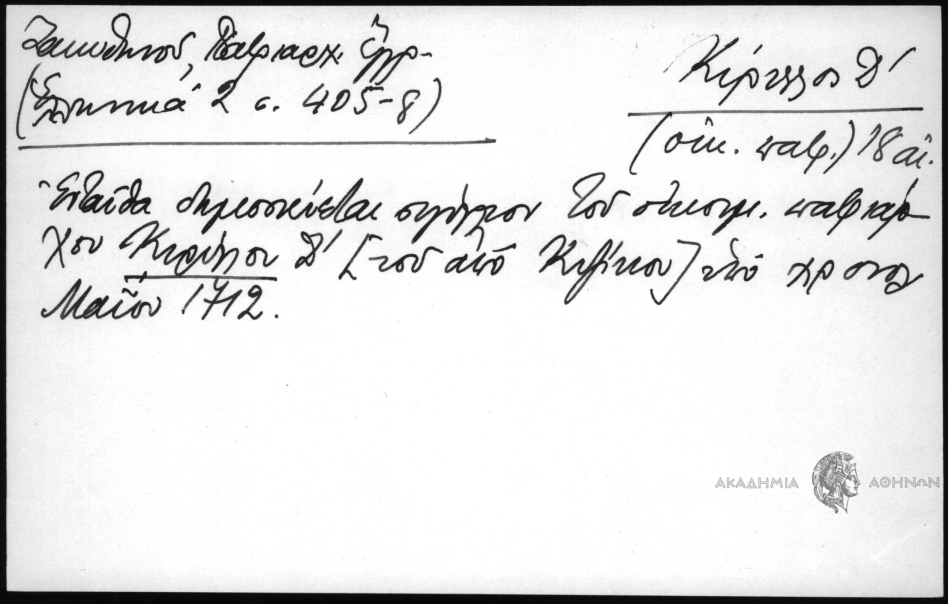 Ζακυθηνοῦ, Πατριαρχ. ἔγγρ-
(Ἑλληνικά 2 σ. 405-8)
Κύριλλος Δ'
(οἰκ. πατρ.) 18 αἰ.
Ἐνταῦθα δημοσιεύεται σιγίλλιον τοῦ οἰκουμ. πατριάρ-
χου Κυρίλλου Δ' [τοῦ ἀπό Κυζίκου] ὑπό χρονολ
Μαΐου 1712.
ΑΚΑΔΗΜΙΑ ΑΘΗΝΩΝ